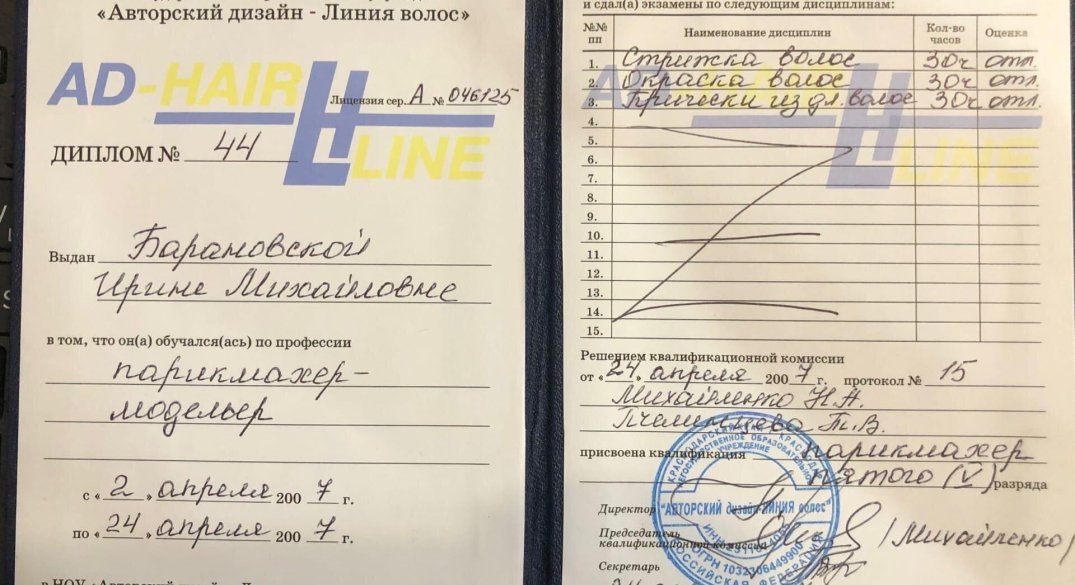 «Авторский дизайн - Линия волос»
AD-HAIR
LINE
Лицензия сер. А № 046125
ДИПЛОМ № 44
Выдан Барановской
Ирине Михайловне
в том, что он(а) обучался(ась) по профессии
парикмахер-
модельер
с «2» апреля 2007 г.
по «24» апреля 2007 г.
и сдал(а) экзамены по следующим дисциплинам:
№№ пп Наименование дисциплин Кол-во часов Оценка
1. Стрижка волос 30ч отл.
2. Окраска волос 30ч отл.
3. Прически из дл. волос 30ч отл.
4.
5.
6.
7.
8.
9.
10.
11.
12.
13.
14.
15.
LINE
Решением квалификационной комиссии
от «24» апреля 2007 г. протокол № 15
Михайленко Н.А.
Пчелинцева Т.В.
присвоена квалификация парикмахер
пятого (V) разряда
Директор
Председатель
квалификационной комиссии (Михайленко)
Секретарь
"АВТОРСКИЙ дизайн-ЛИНИЯ волос"